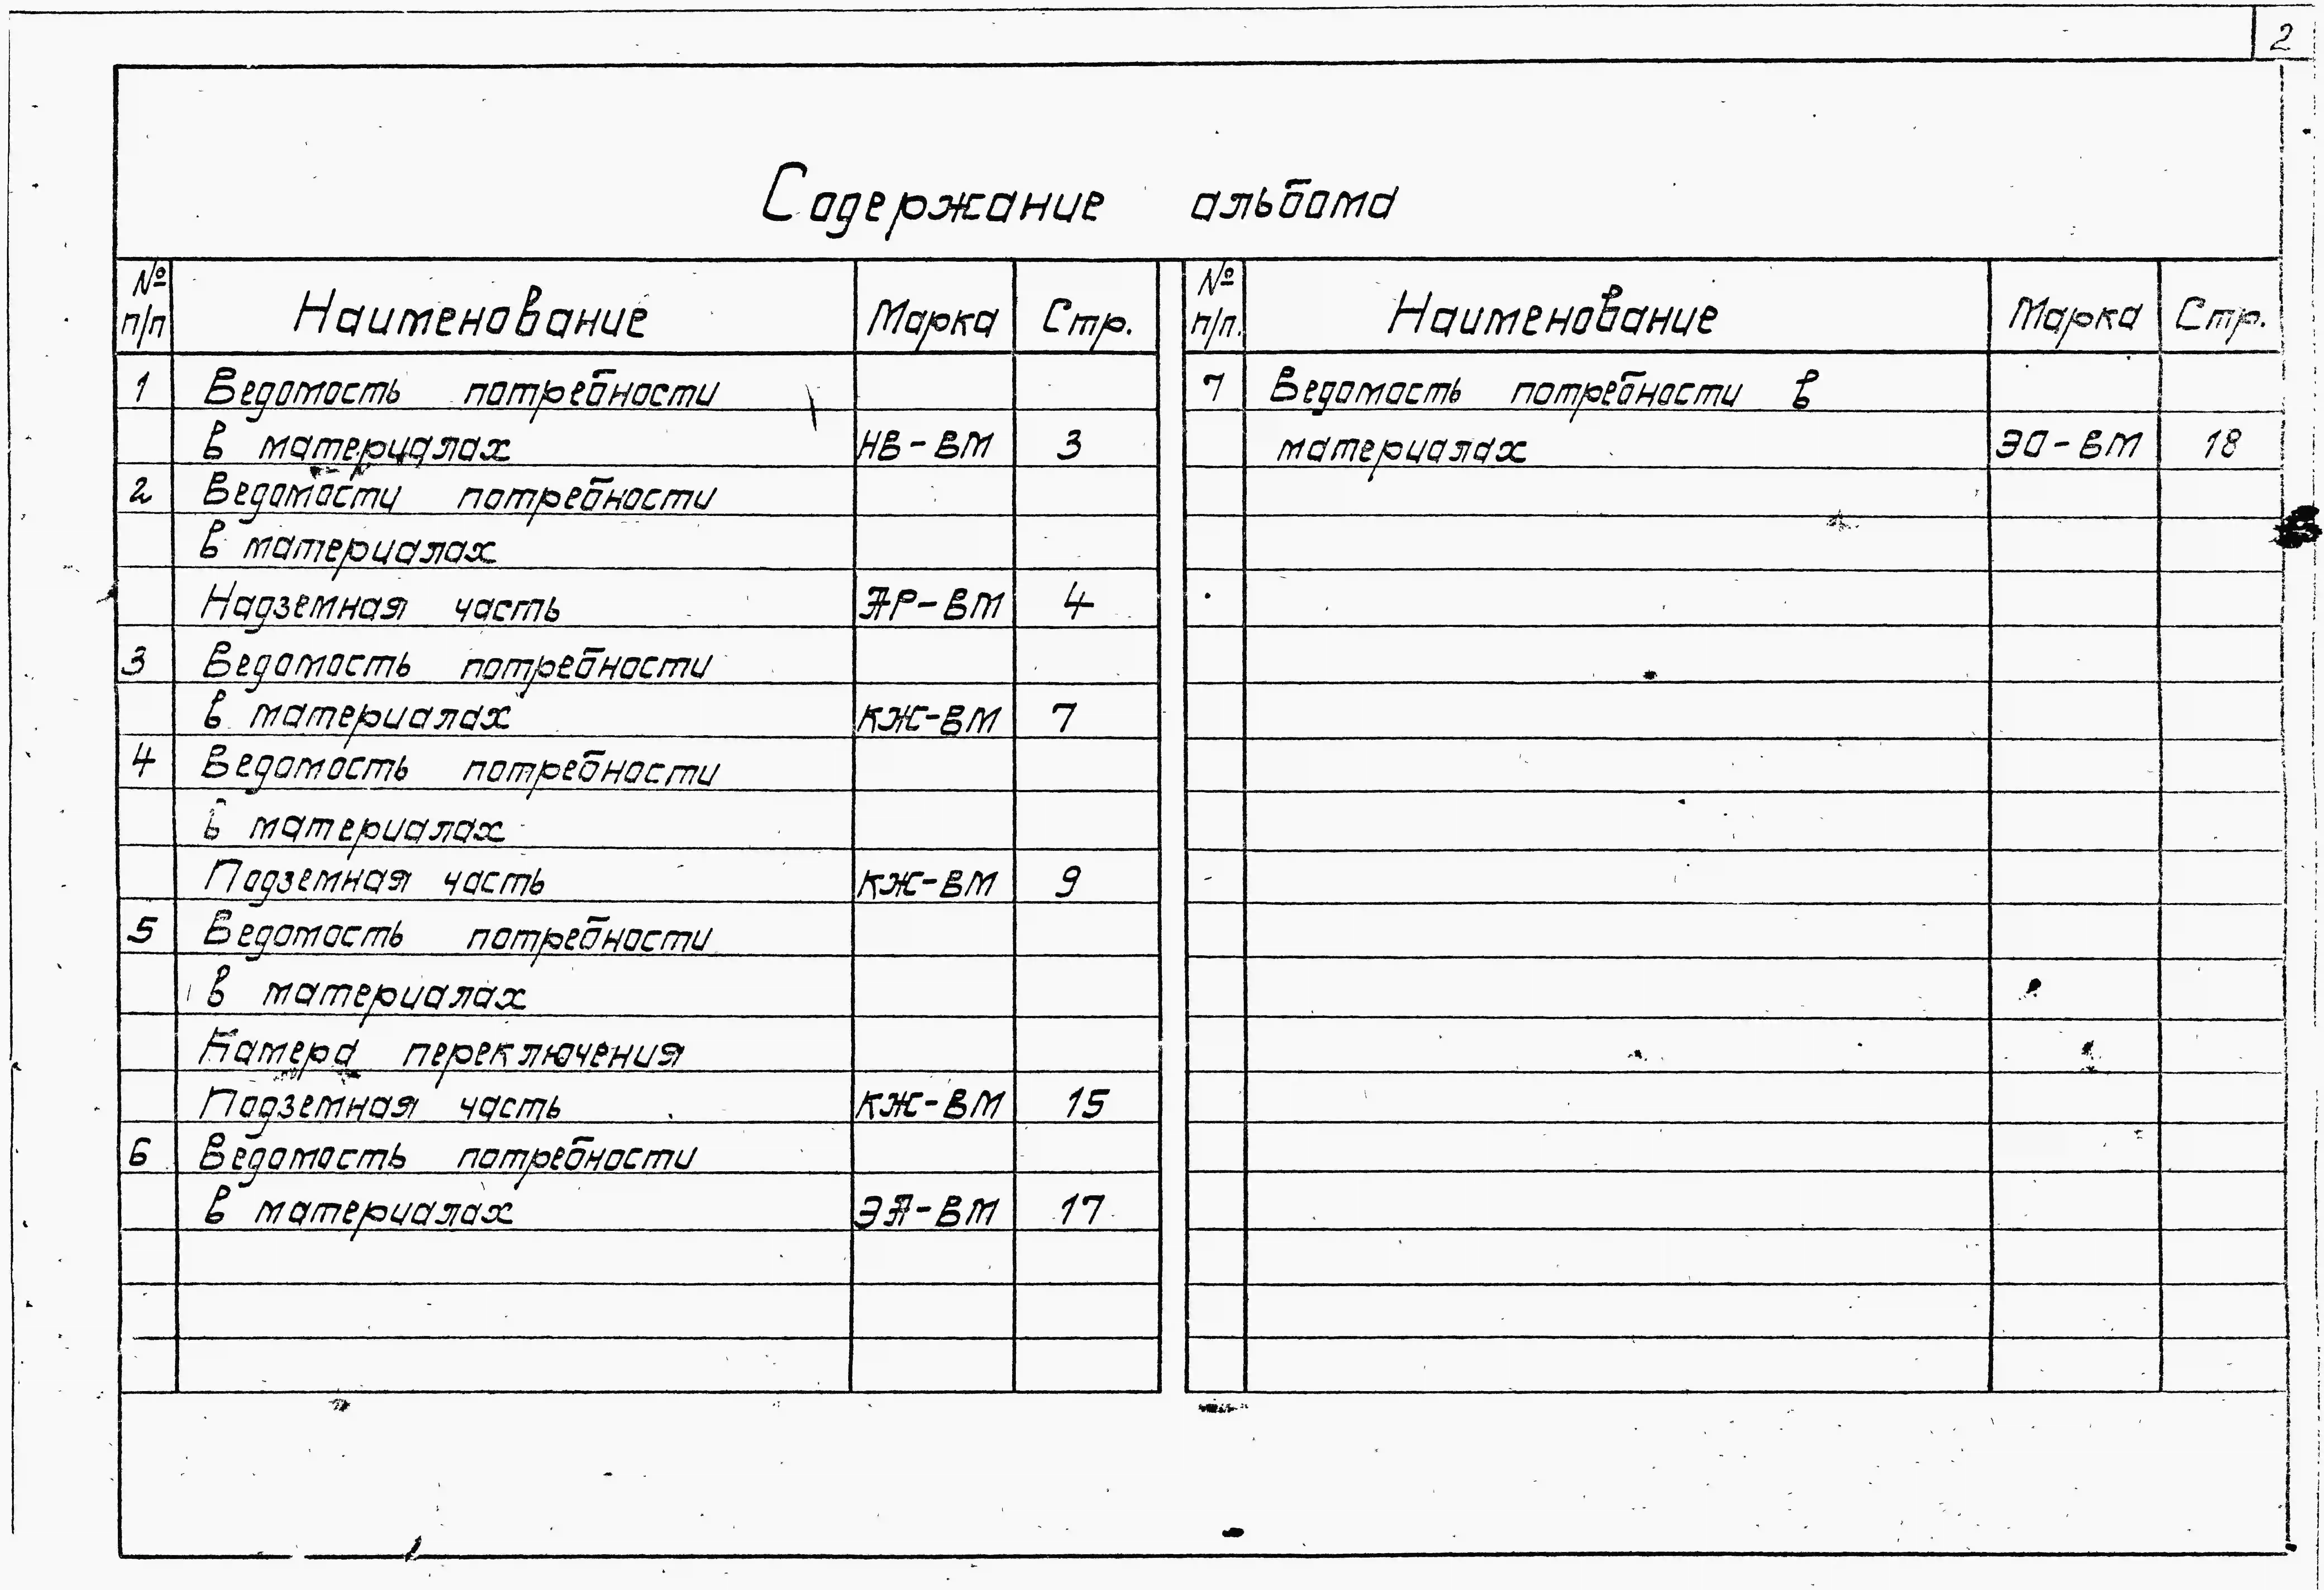 2
Содержание альбома
№ п/п Наименование Марка Стр.
1 Ведомость потребности
в материалах НВ-ВМ 3
2 Ведомости потребности
в материалах
Надземная часть АР-ВМ 4
3 Ведомость потребности
в материалах КЖ-ВМ 7
4 Ведомость потребности
в материалах
Подземная часть КЖ-ВМ 9
5 Ведомость потребности
в материалах
Камера переключения
Подземная часть КЖ-ВМ 15
6 Ведомость потребности
в материалах ЭА-ВМ 17
№ п/п. Наименование Марка Стр.
7 Ведомость потребности в
материалах ЭО-ВМ 18